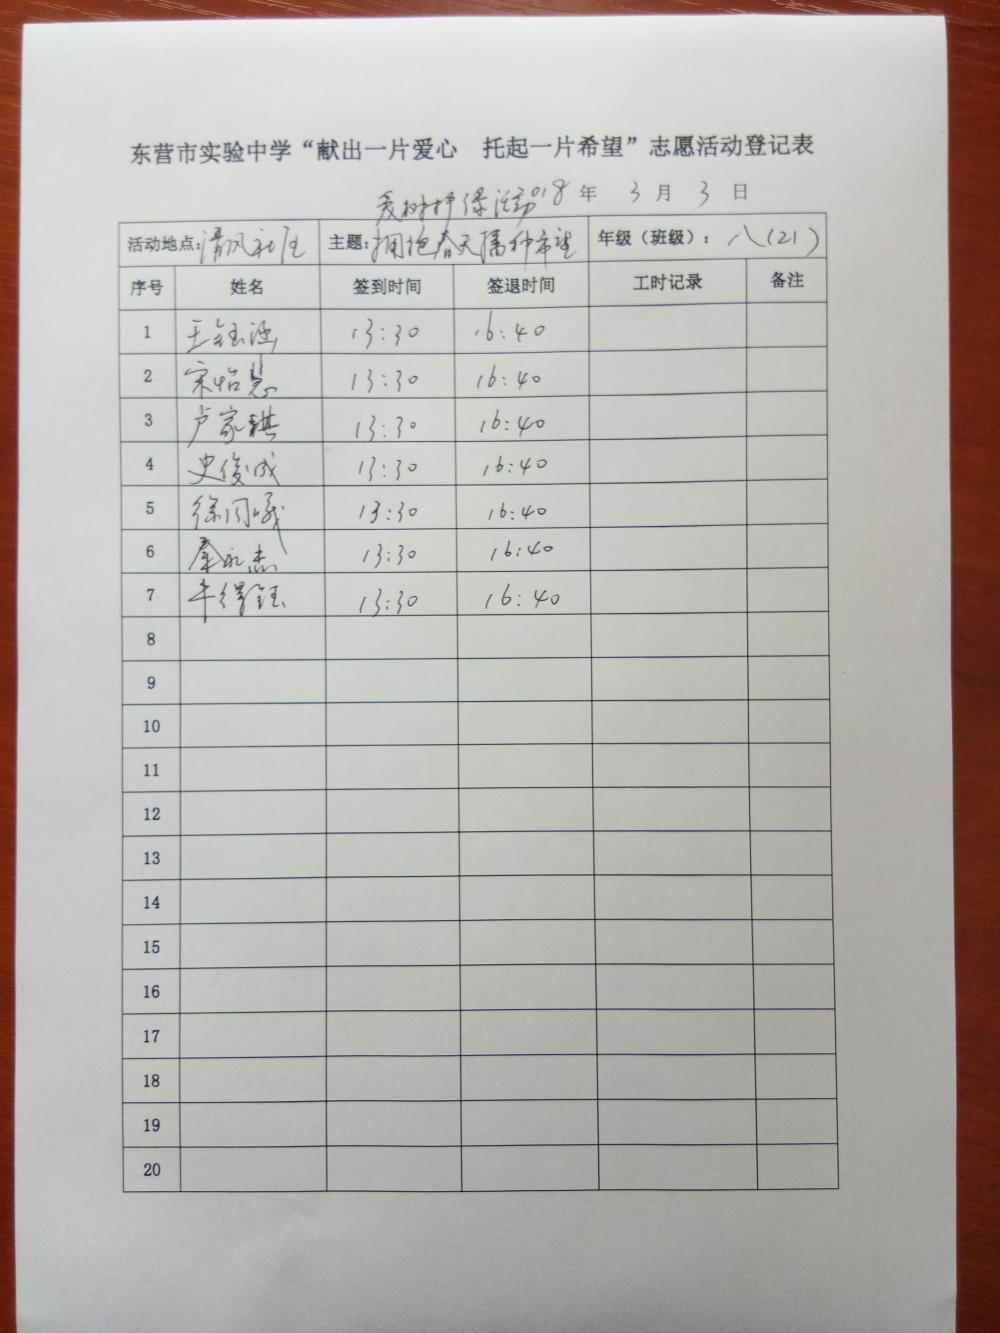 东营市实验中学“献出一片爱心 托起一片希望”志愿活动登记表
爱树护绿活动 2018年 3月 3日
活动地点:清风社区 主题:拥抱春天播种希望 年级（班级）：八（21）
序号 姓名 签到时间 签退时间 工时记录 备注
1 王钰涵 13:30 16:40
2 宋怡慧 13:30 16:40
3 卢家祺 13:30 16:40
4 史俊成 13:30 16:40
5 徐同曦 13:30 16:40
6 秦永杰 13:30 16:40
7 牛得钰 13:30 16:40
8
9
10
11
12
13
14
15
16
17
18
19
20